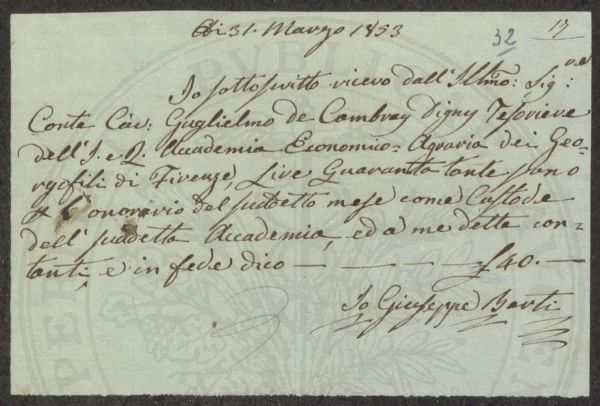 Adi 31. Marzo 1853
32 17
Io sottoscritto ricevo dall'Illmo: Sig:re
Conte Cav: Guglielmo de Cambray Digny Tesoriere
dell'I. e R. Accademia Economico=Agraria dei Geo=
rgofili di Firenze, Lire Quaranta tante sono
per l'onorario del suddetto mese come Custode
dell'suddetta Accademia, ed a me dette con=
tanti, e in fede dico — — — — £40. —
Io Giuseppe Barti